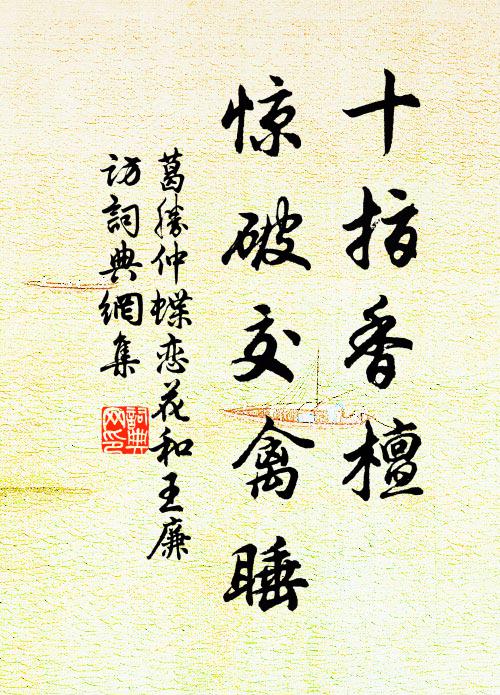 十指香檀
惊破交禽睡
葛勝仲蝶恋花和王廉
访詞典網集
詞典网印